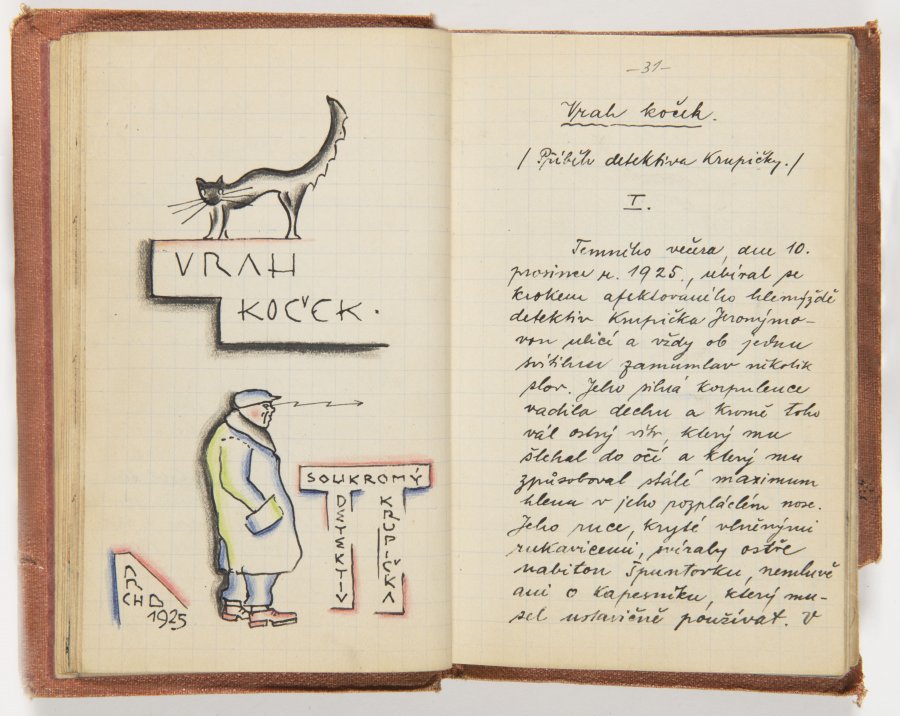 VRAH
KOČEK.
SOUKROMÝ
DETEKTIV
KRUPIČKA
ARCH
1925
—31—
Vrah koček.
/ Příběh detektiva Krupičky. /
I.
Temního večera, dne 10.
prosince r. 1925., ubíral se
krokem afektovaného hlemýždě
detektiv Krupička Jeronýmo-
vou ulicí a vždy ob jednu
svítilnu zamumlav několik
slov. Jeho silná korpulence
vadila dechu a kromě toho
vál ostrý vítr, který mu
šlehal do očí a který mu
způsoboval stálé maximum
hlenu v jeho rozpláclém nose.
Jeho ruce, kryté vlněnými
rukavicemi, svíraly ostře
nabitou špuntovku, nemluvě
ani o kapesníku, který mu-
sel ustavičně používat. V